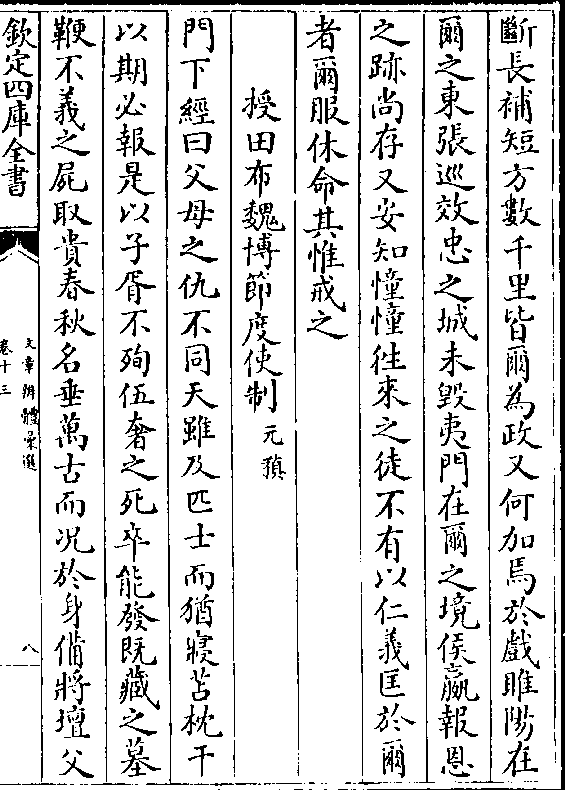 斷長補短方數千里皆爾為政又何加焉於戲睢陽在
爾之東張巡效忠之城未毀夷門在爾之境侯嬴報恩
之跡尚存又安知憧憧往來之徒不有以仁義匡於爾
者爾服休命其惟戒之
授田布魏博節度使制 元稹
門下經曰父母之仇不同天雖及匹士而猶寢苫枕干
以期必報是以子胥不殉伍奢之死卒能發既藏之墓
鞭不義之屍取貴春秋名垂萬古而况於身備將壇父
欽定四庫全書
文章辨體彙選
卷十三
八